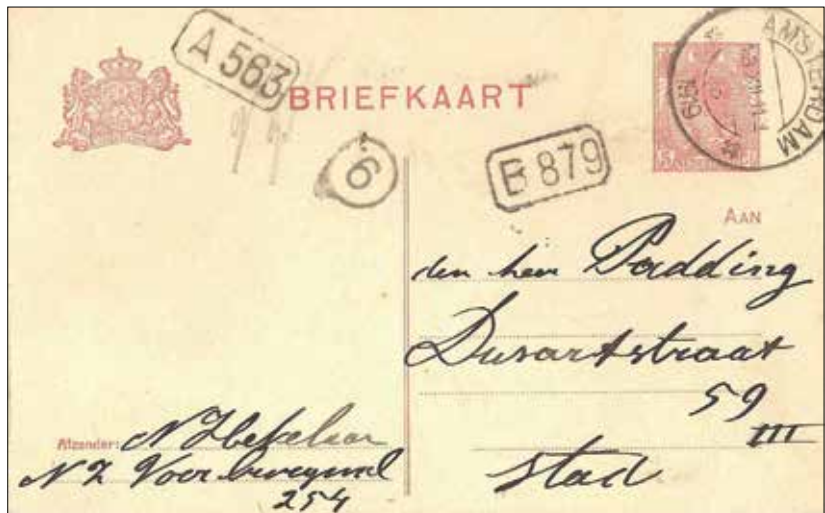 A 563
BRIEFKAART
6
B 879
AMSTERDAM
1919
AAN
den heer Padding
Dusartstraat
59
III
stad
Afzender:
N Z Voorburgwal
254